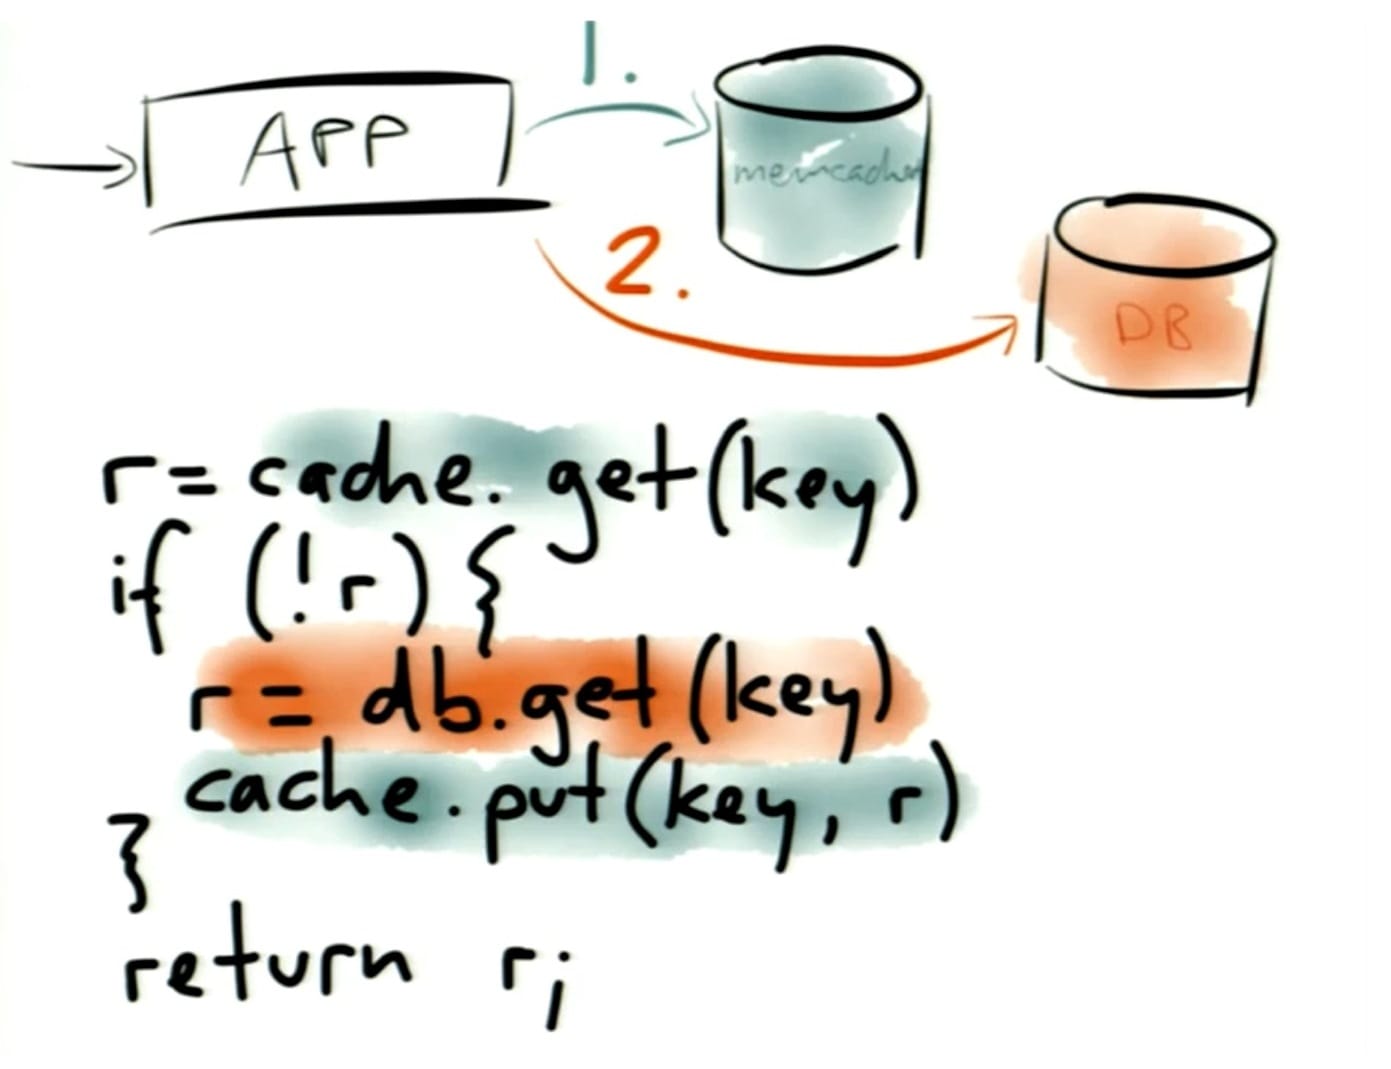 1.
APP
memcached
2.
DB
r= cache.get(key)
if (!r) {
r= db.get(key)
cache.put(key, r)
}
return r;